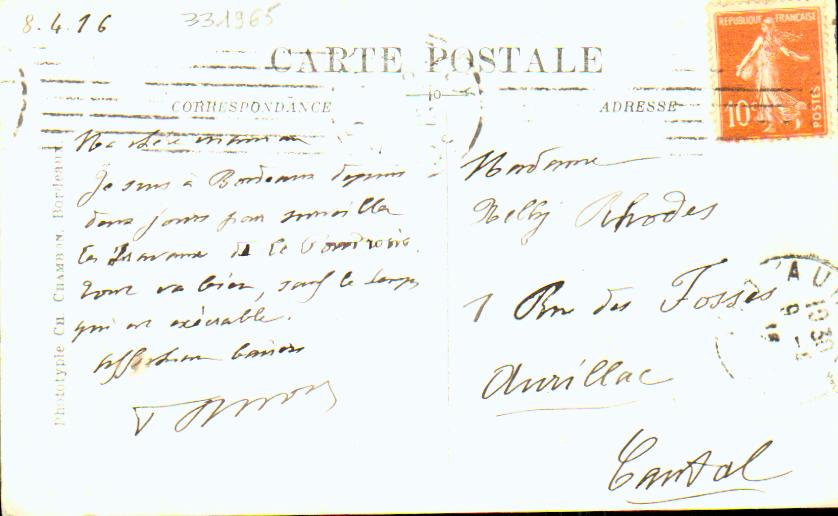 8.4.16
331965
CARTE POSTALE
CORRESPONDANCE
ADRESSE
REPUBLIQUE FRANÇAISE
10c
POSTES
Ma chère maman
Je suis à Bordeaux depuis
deux jours pour surveiller
les travaux de la Poudrerie.
Tout va bien, sauf le temps
qui est exécrable.
Affectueux baisers
Madame
Nelly Rhodes
1 Rue des Fossés
Aurillac
Cantal
AU
10 30
9 - 4
Phototypie Ch. Chambon, Bordeaux